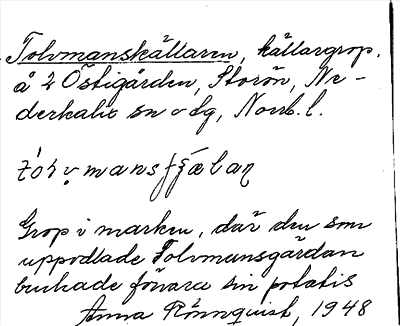 Tolvmanskällaren, källargrop.
å 2 Östigården, Storön, Ne-
derkalix sn o dg, Norrb. l.
Grop i marken, där den som
uppodlade Tolvmansgärdan
brukade förvara sin potatis
Anna Rönnquist, 1948